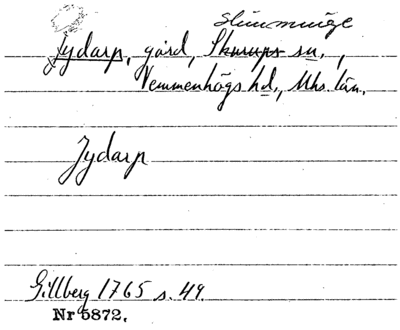 Slimminge
Jydarp, gård, Skurups sn.,
Vemmenhögs hd., Mhs. län.
Jydarp
Gillberg 1765 s. 49.
Nr 5872.